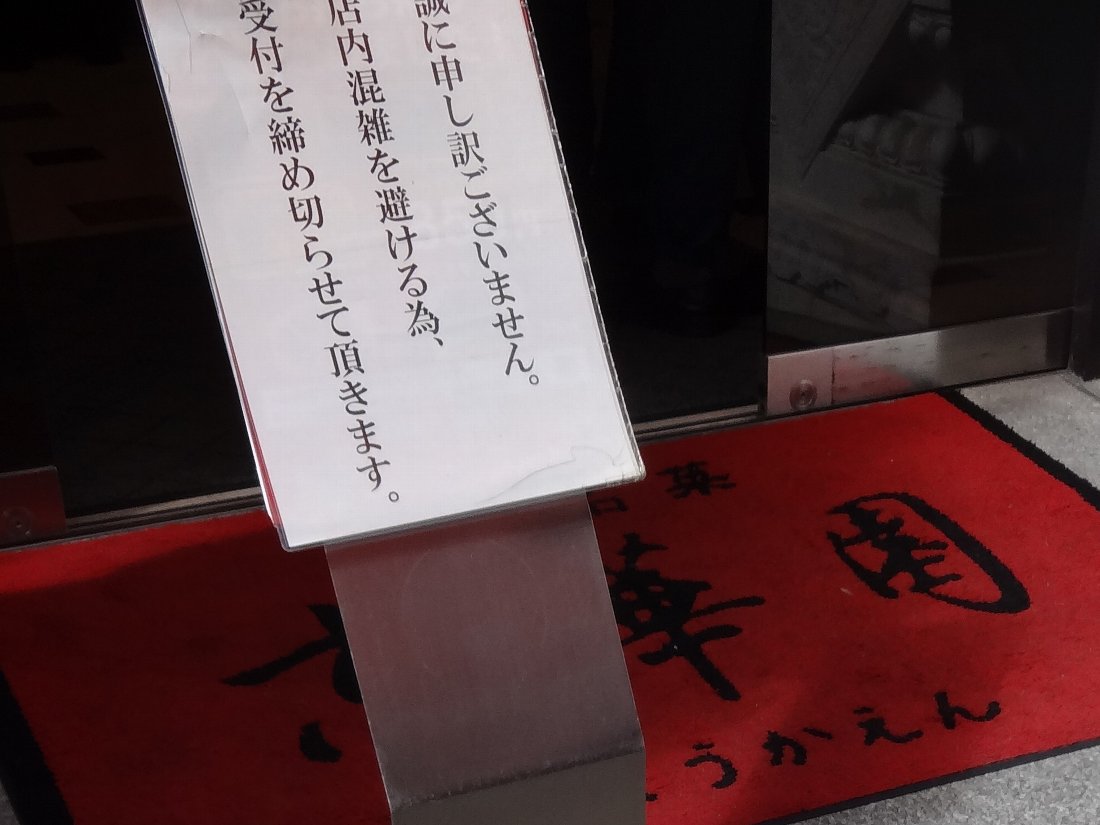 誠に申し訳ございません。
店内混雑を避ける為、
受付を締め切らせて頂きます。
華園
うかえん